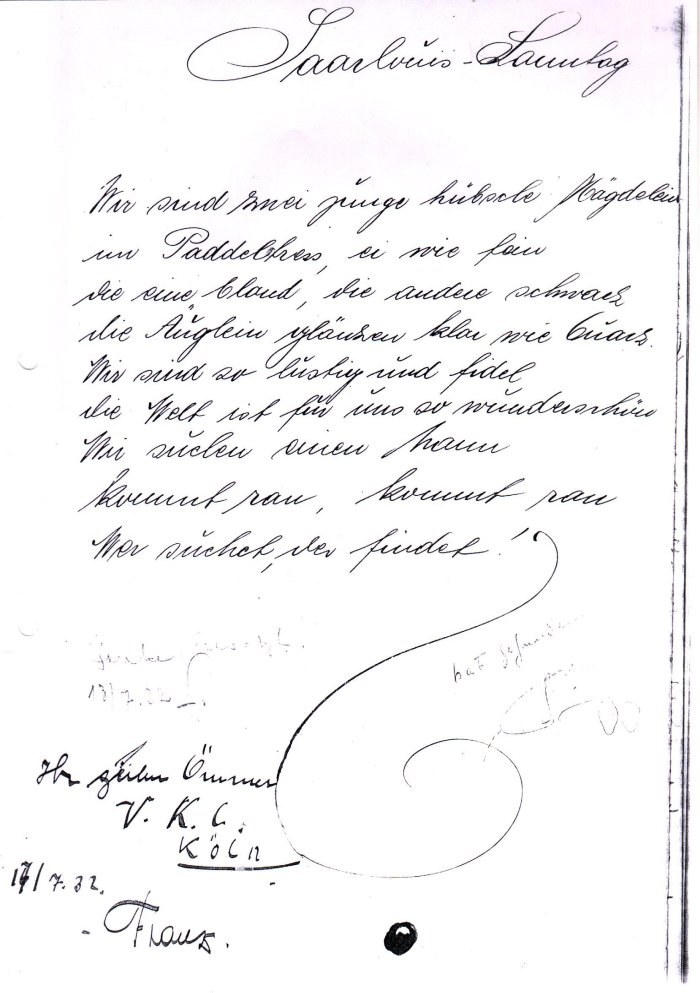 Saarlouis-Sonntag
Wir sind zwei junge hübsche Mägdelein
im Paddeldress, ei wie fein
die eine blond, die andere schwarz
die Äuglein glänzen klar wie Quarz.
Wir sind so lustig und fidel,
die Welt ist für uns so wunderschön
Wir suchen einen Mann
kommt ran, kommt ran
Wer suchet, der findet!
hat
18/7.32.
V. K. C.
KÖLN
17/7.32.
- Franz.